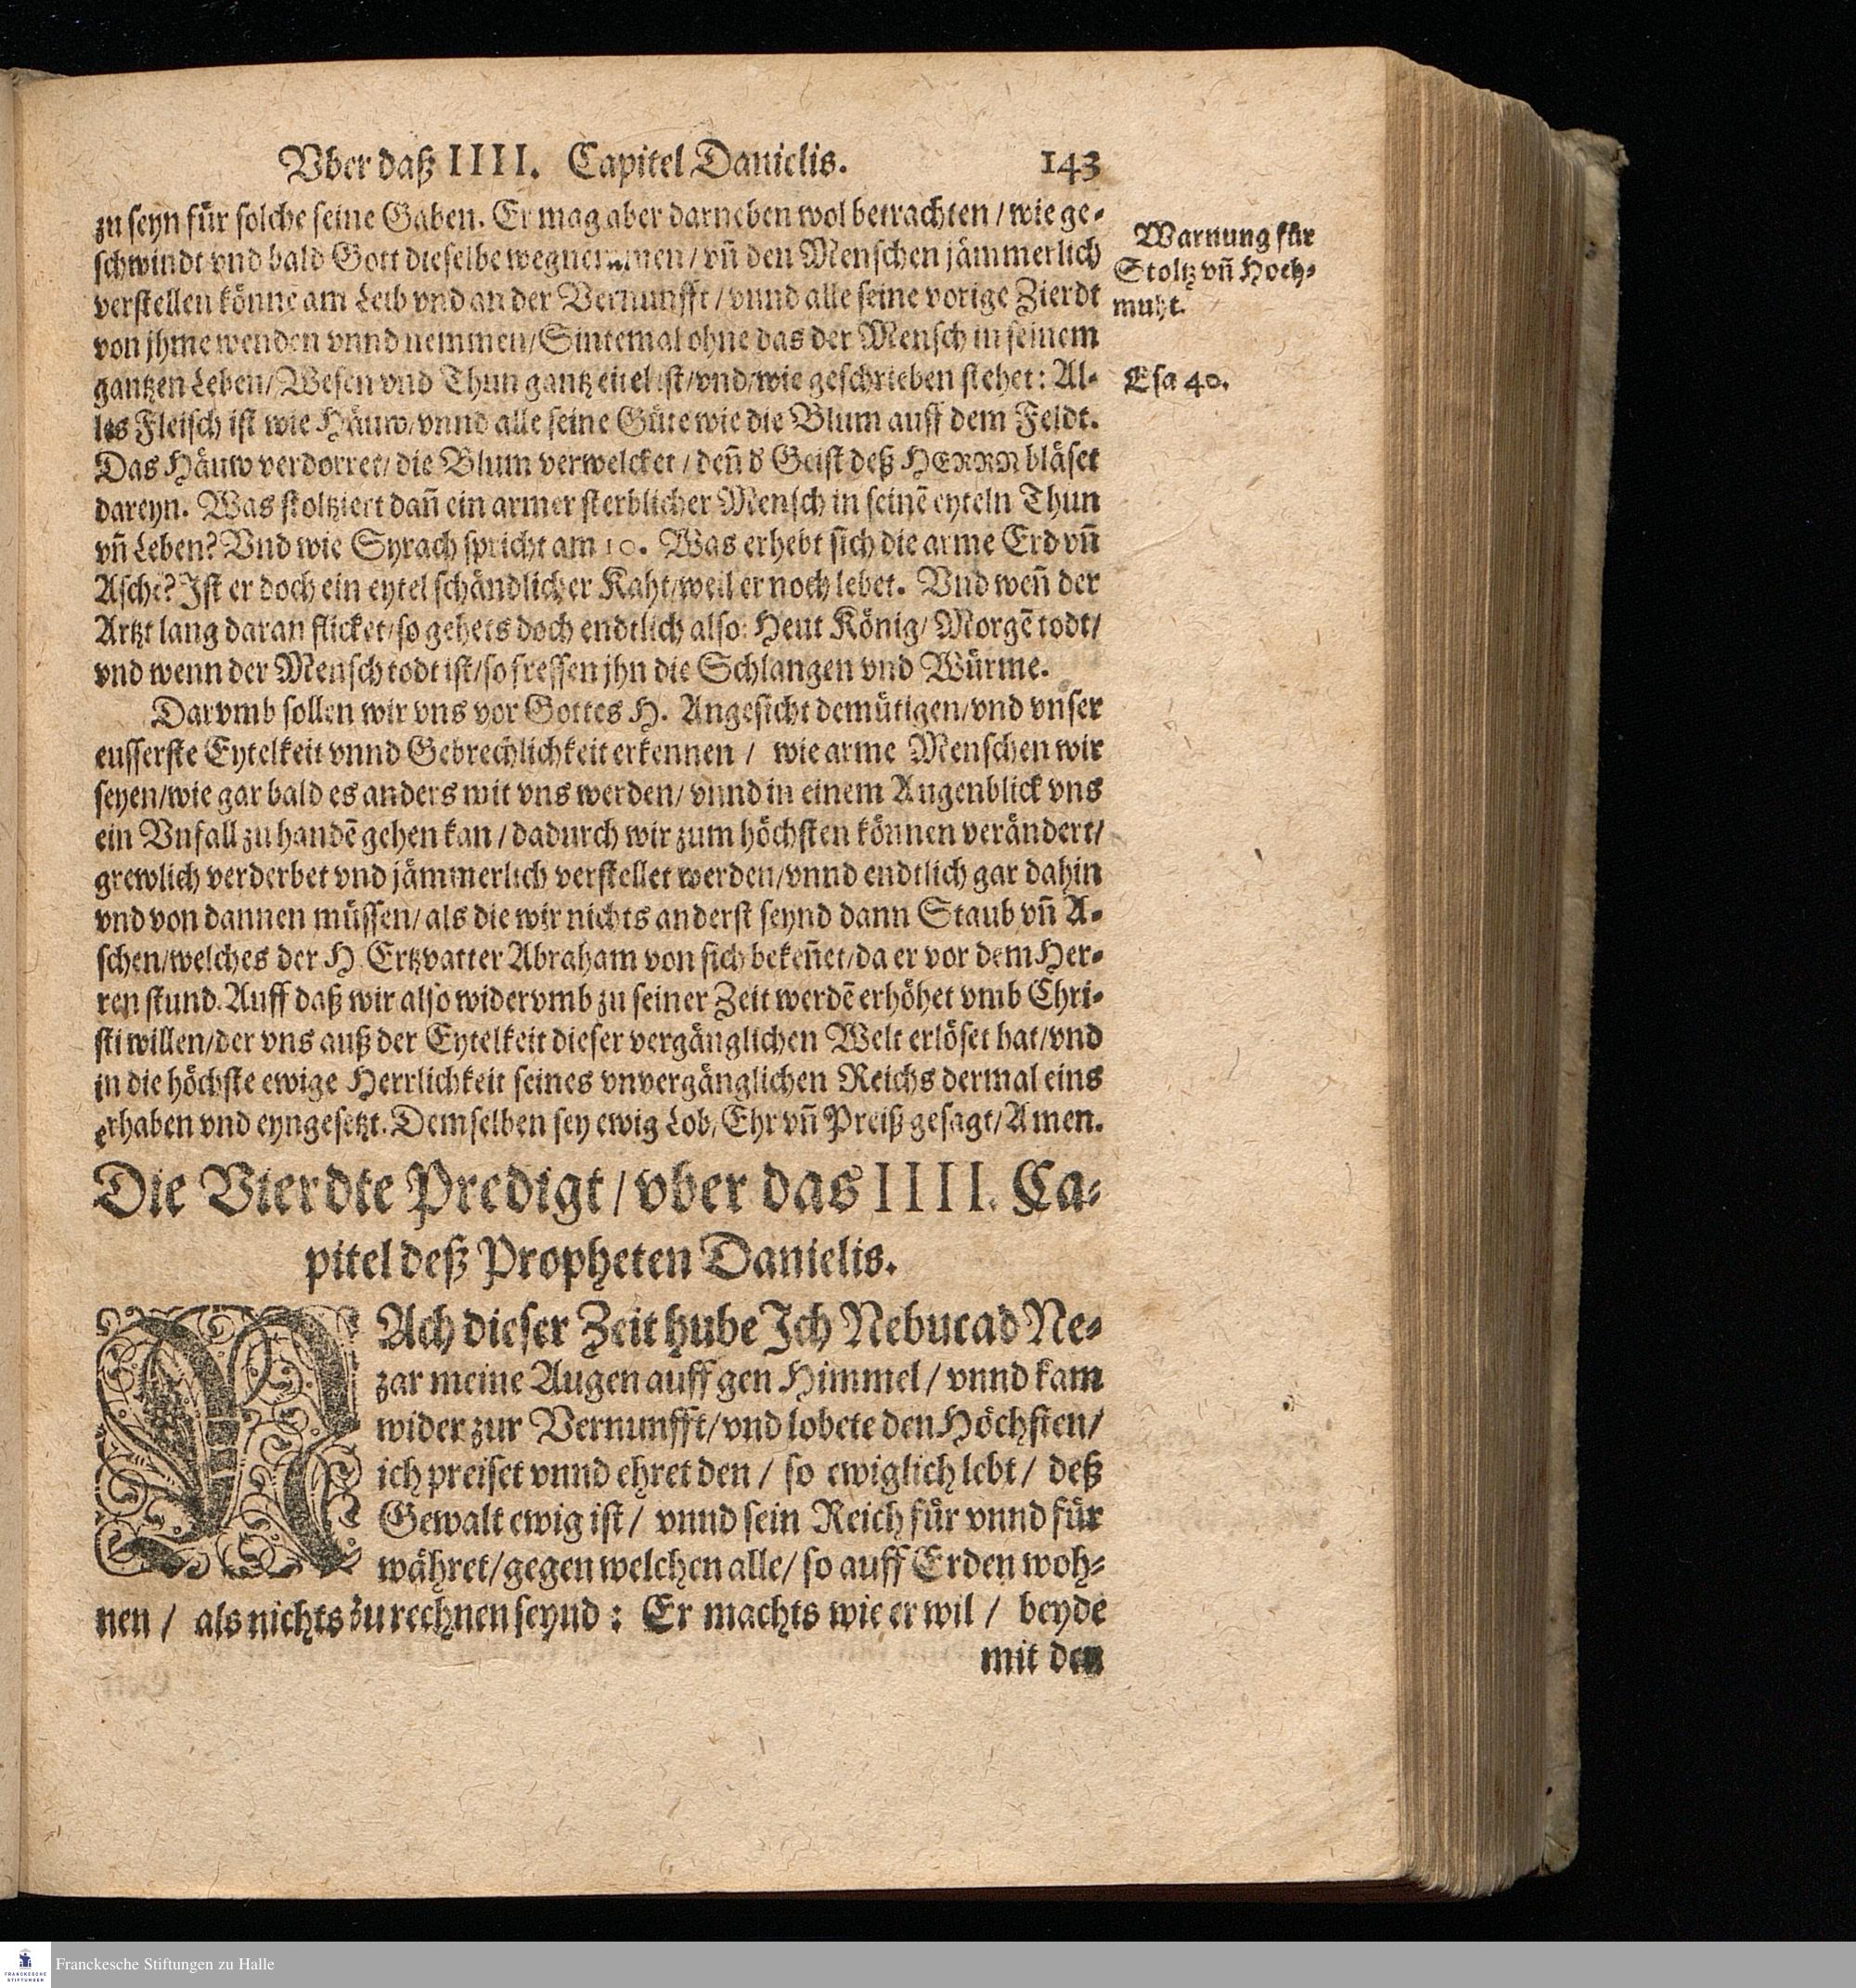 Vber daß IIII. Capitel Danielis. 143
zu seyn für solche seine Gaben. Er mag aber darneben wol betrachten / wie ge-
schwindt vnd bald Gott dieselbe wegnemmen / vn̄ den Menschen jämmerlich
verstellen könne am Leib vnd an der Vernunfft / vnnd alle seine vorige Zierdt
von jhme wenden vnnd nemmen / Sintemal ohne das der Mensch in seinem
gantzen Leben / Wesen vnd Thun gantz eitel ist / vnd / wie geschrieben stehet: Al-
les Fleisch ist wie Häuw / vnnd alle seine Güte wie die Blum auff dem Feldt.
Das Häuw verdorret / die Blum verwelcket / den̄ d Geist deß HERRN bläset
dareyn. Was stoltziert dan̄ ein armer sterblicher Mensch in seinē eyteln Thun
vn̄ Leben? Vnd wie Syrach spricht am 10. Was erhebt sich die arme Erd vn̄
Asche? Ist er doch ein eytel schändlicher Kaht / weil er noch lebet. Vnd wen̄ der
Artzt lang daran flicket / so gehets doch endtlich also: Heut König / Morgē todt /
vnd wenn der Mensch todt ist / so fressen jhn die Schlangen vnd Würme.
Darvmb sollen wir vns vor Gottes H. Angesicht demütigen / vnd vnser
eusserste Eytelkeit vnnd Gebrechlichkeit erkennen / wie arme Menschen wir
seyen / wie gar bald es anders mit vns werden / vnnd in einem Augenblick vns
ein Vnfall zu handē gehen kan / dadurch wir zum höchsten können verändert /
grewlich verderbet vnd jämmerlich verstellet werden / vnnd endtlich gar dahin
vnd von dannen müssen / als die wir nichts anderst seynd dann Staub vn̄ A-
schen / welches der H. Ertzvatter Abraham von sich beken̄et / da er vor dem Her-
ren stund. Auff daß wir also widervmb zu seiner Zeit werdē erhöhet vmb Chri-
sti willen / der vns auß der Eytelkeit dieser vergänglichen Welt erlöset hat / vnd
in die höchste ewige Herrlichkeit seines vnvergänglichen Reichs dermal eins
erhaben vnd eyngesetzt. Demselben sey ewig Lob / Ehr vn̄ Preiß gesagt / Amen.
Warnung für
Stoltz vn̄ Hoch-
muht.
Esa 40.
Die Vierdte Predigt / vber das IIII. Ca-
pitel deß Propheten Danielis.
NAch dieser Zeit hube Ich Nebucad Ne-
zar meine Augen auff gen Himmel / vnnd kam
wider zur Vernunfft / vnd lobete den Höchsten /
ich preiset vnnd ehret den / so ewiglich lebt / deß
Gewalt ewig ist / vnnd sein Reich für vnnd für
währet / gegen welchen alle / so auff Erden woh-
nen / als nichts zu rechnen seynd : Er machts wie er wil / beyde
mit den
FRANCKESCHE
STIFTUNGEN
Franckesche Stiftungen zu Halle